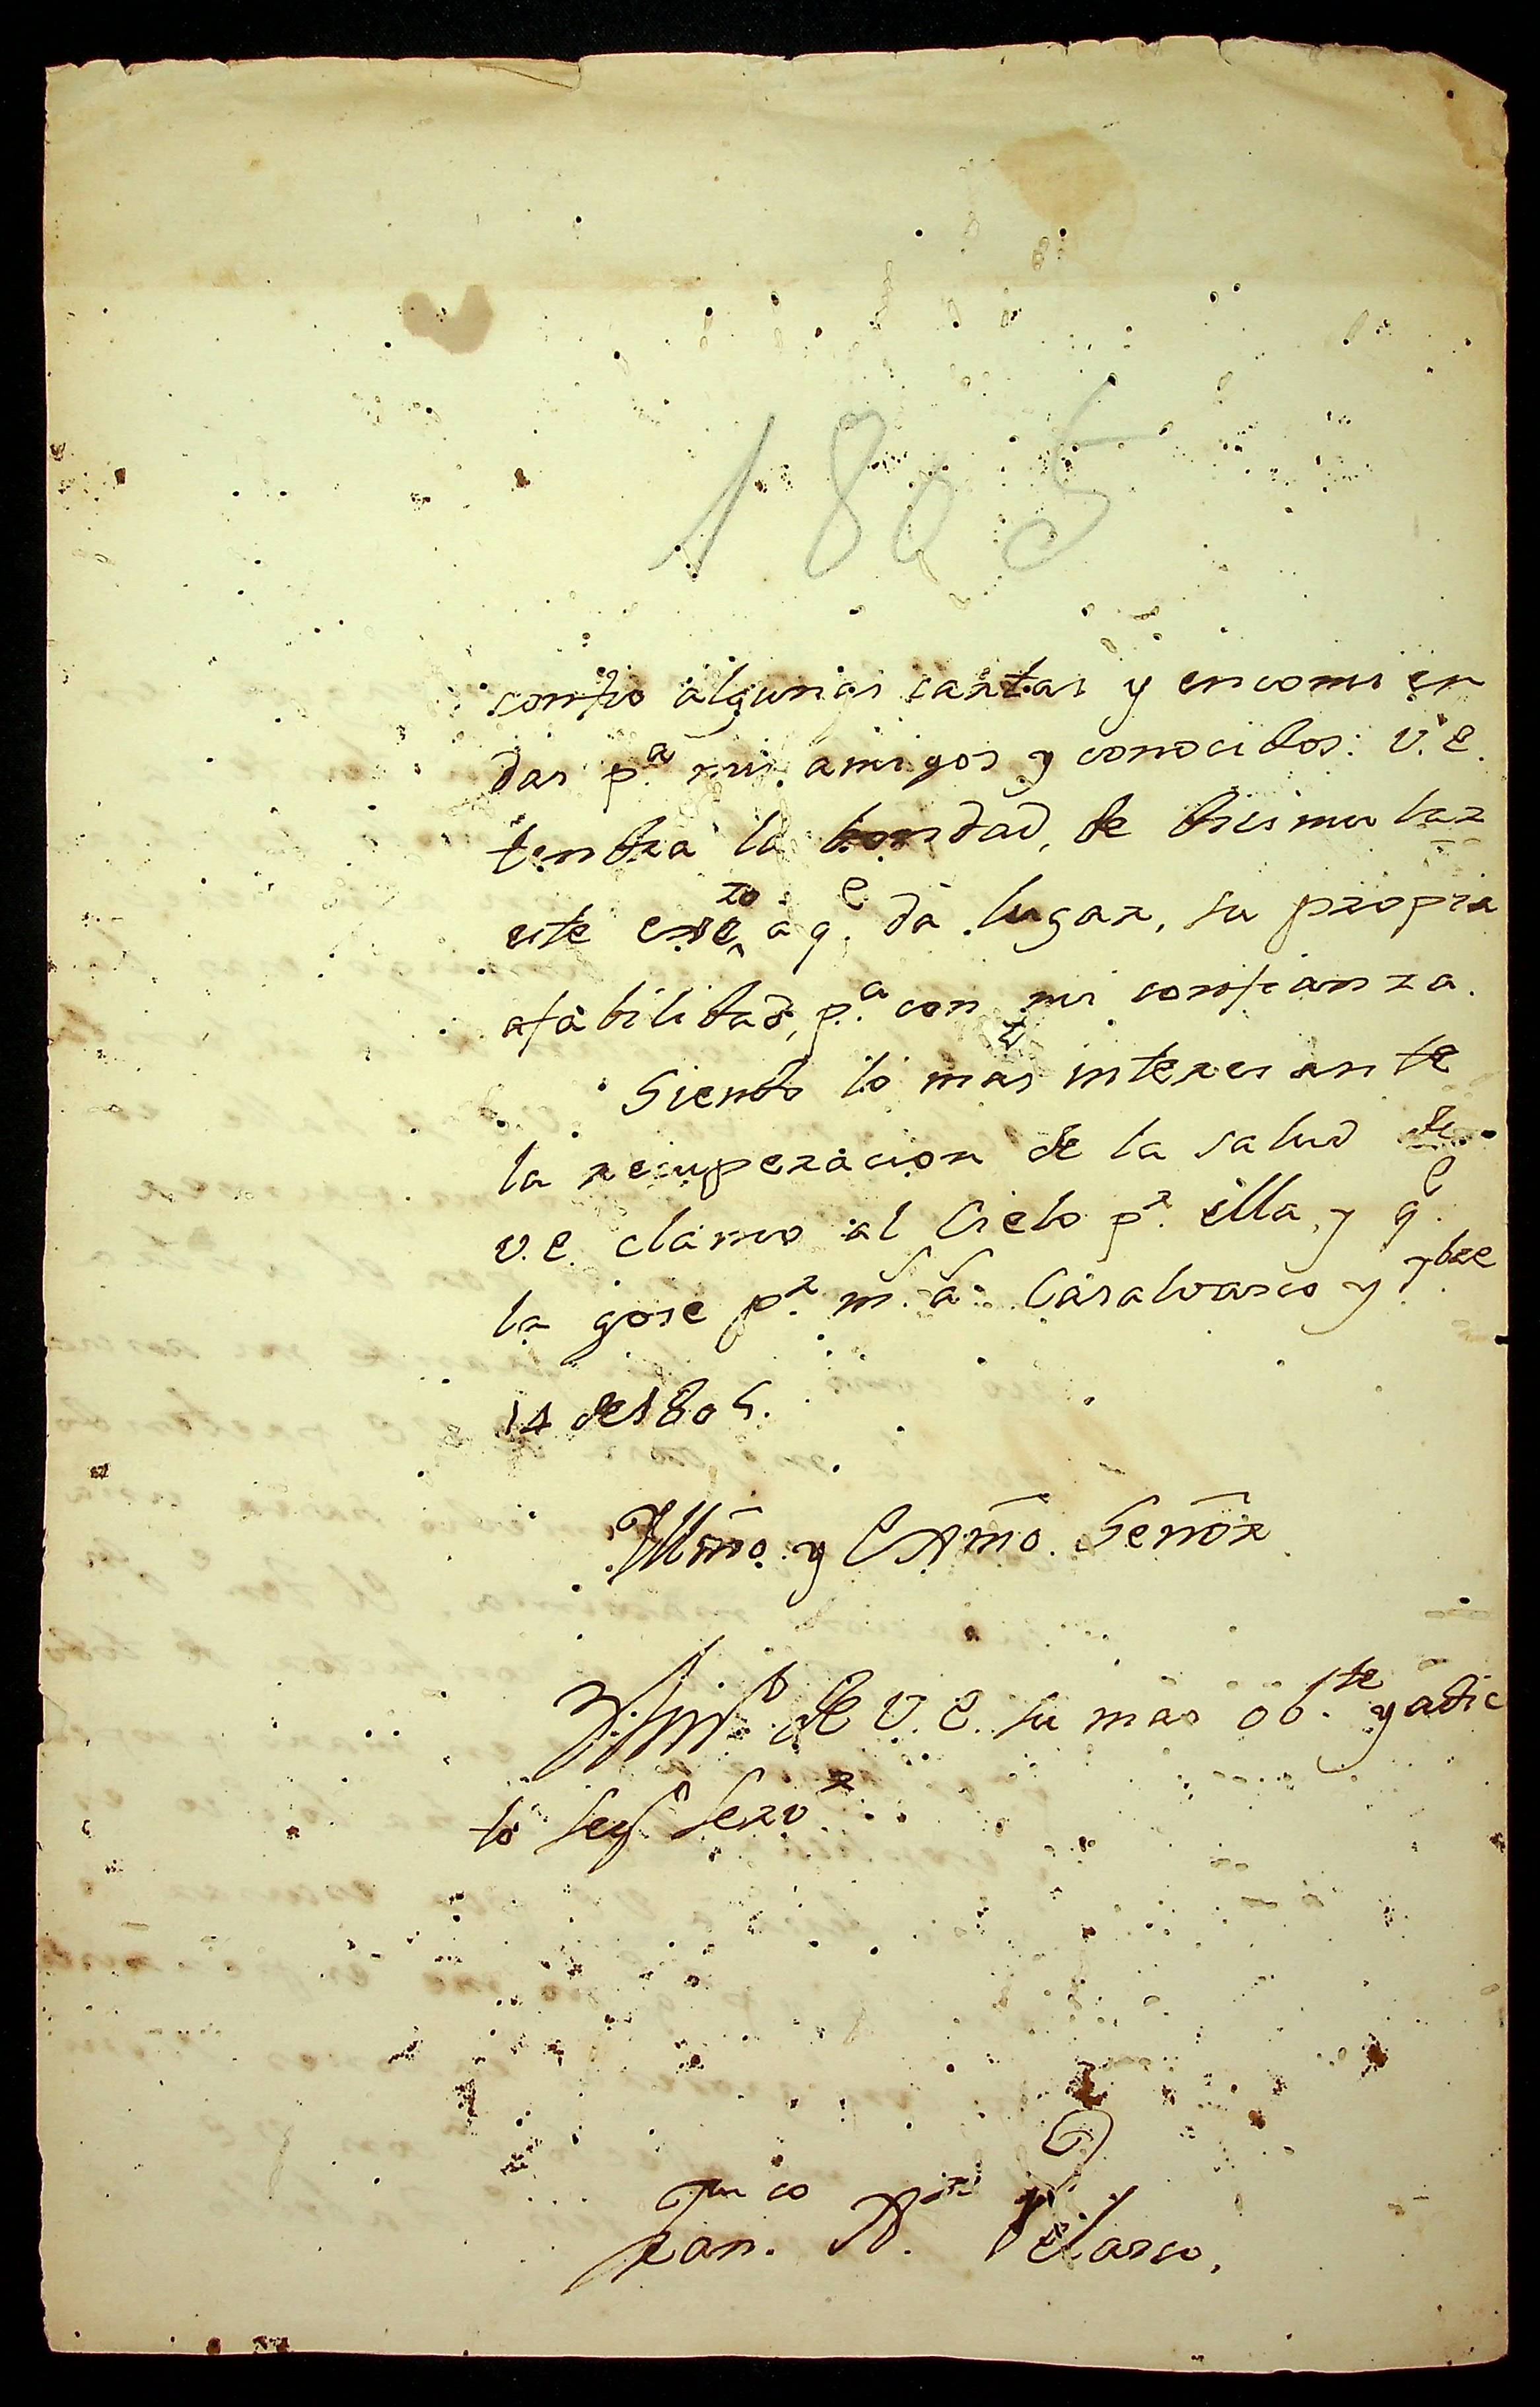 1805
confio algunas cartas y encomien
das p.ª mis amigos y conocidos: V. E.
tendra la bondad, de disimular
este exseto, à q.e dà lugar, su propria
afabilidad, p.ª con mi confianza.
Siendo lo mas interesante
la recuperacion de la salud de
V. E. clamo al Cielo p.r ella, y q.e
la gose p.r m.s a.s Casalvasco y 7bre
14 de 1805.
Illmo. y Exmo. Señor
de V. E. su mas ob.te y adic
to seg.o serv.r
Fran.co A.... Velasco,